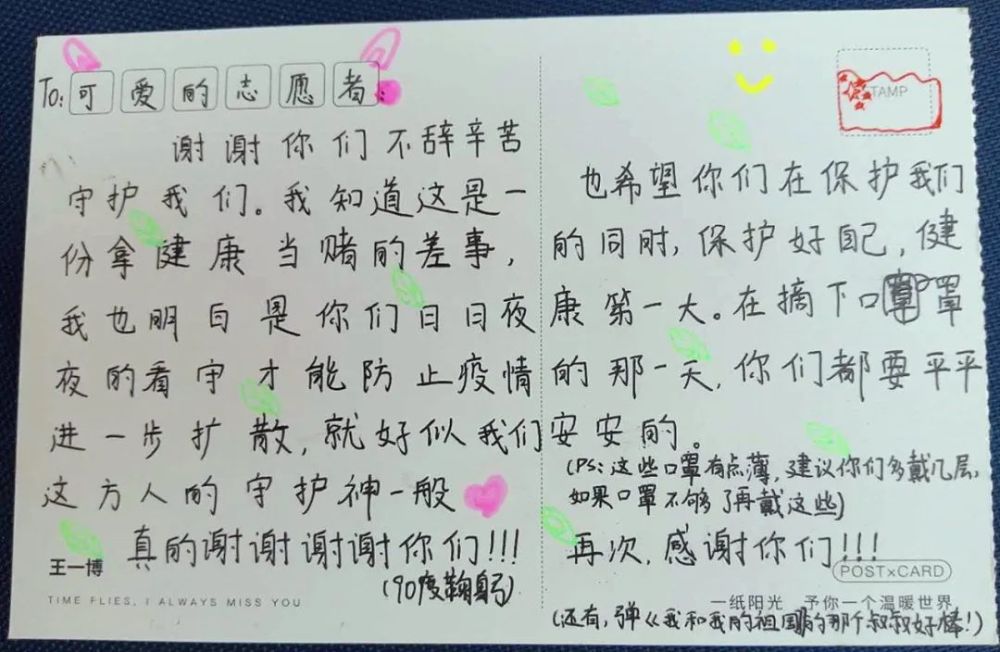 To: 可爱的志愿者:
谢谢你们不辞辛苦
守护我们。我知道这是一
份拿健康当赌的差事,
我也明白是你们日日夜
夜的看守才能防止疫情
进一步扩散,就好似我们
这方人的守护神一般
真的谢谢谢谢你们!!!
(90度鞠躬)
王一博
TIME FLIES, I ALWAYS MISS YOU
TAMP
也希望你们在保护我们
的同时,保护好自己,健
康第一大。在摘下口罩
的那一天,你们都要平平
安安的。
(PS:这些口罩有点薄,建议你们多戴几层,
如果口罩不够了再戴这些)
再次,感谢你们!!!
POST×CARD
一纸阳光 予你一个温暖世界
(还有,弹《我和我的祖国》的那个叔叔好棒!)